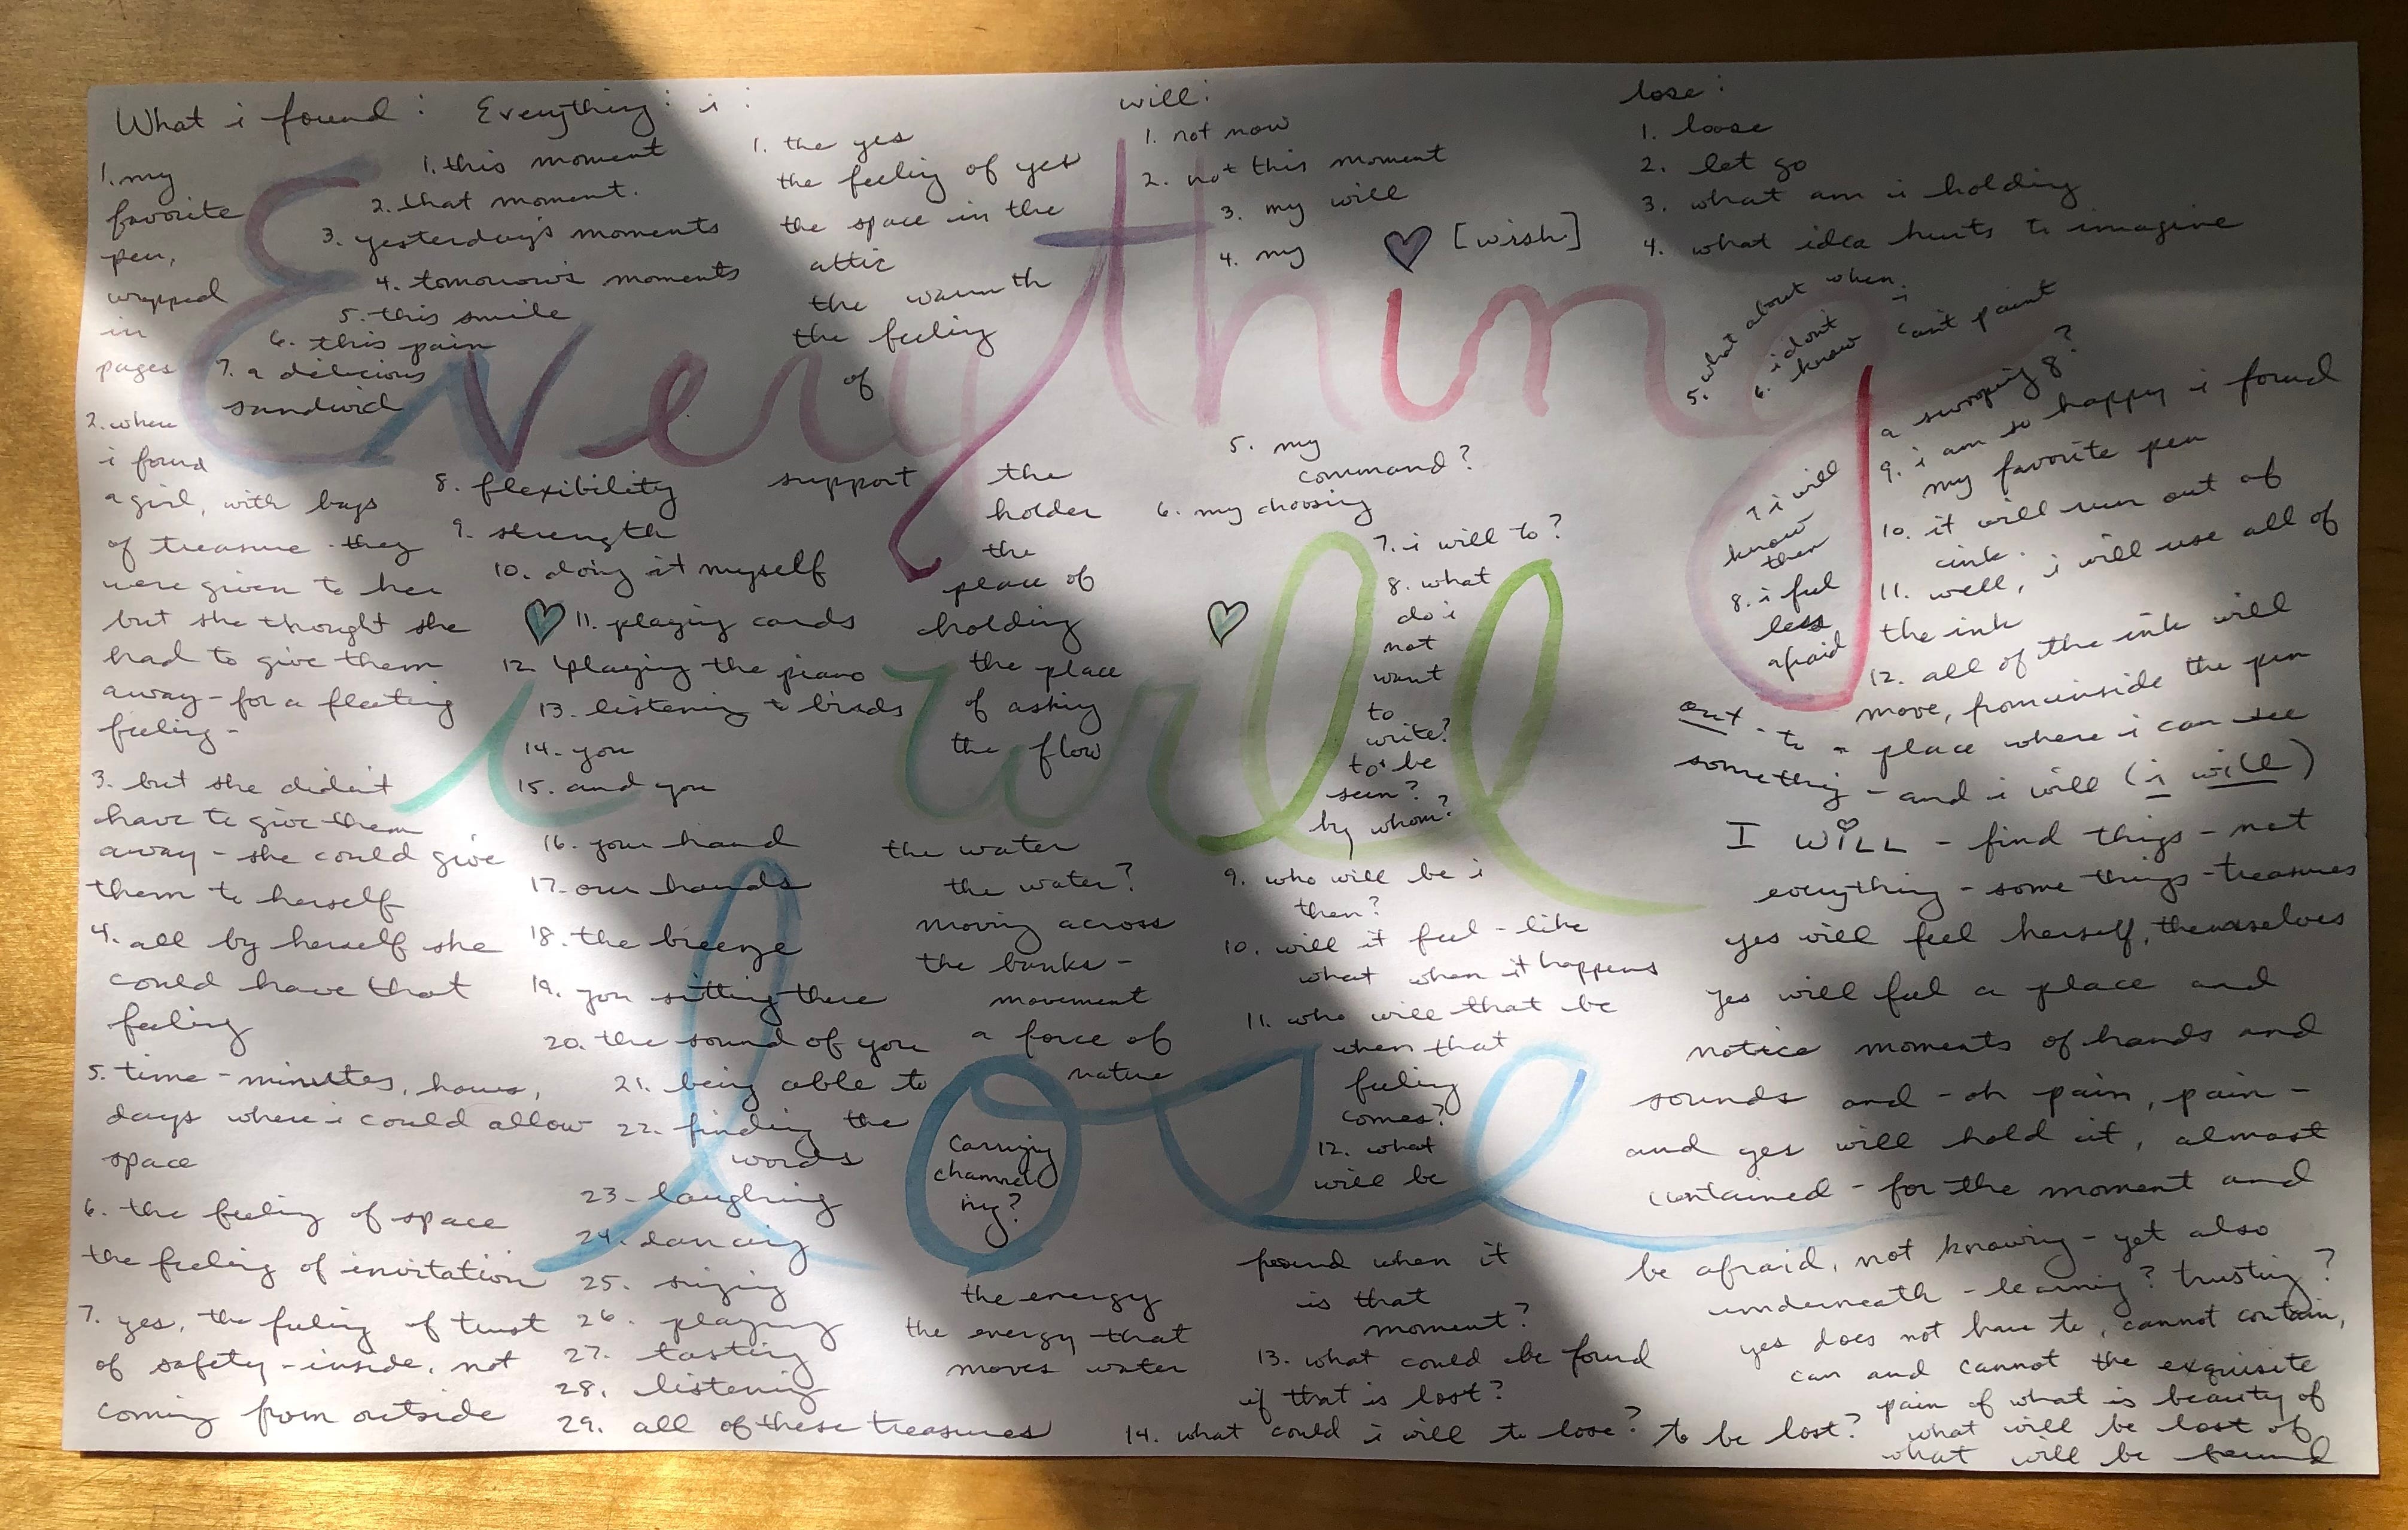 Everything
i will
lose
What i found:
1. my
favorite
pen,
wrapped
in
pages
2. where
i found
a girl, with bags
of treasure - they
were given to her
but she thought she
had to give them
away - for a fleeting
feeling -
3. but she didn't
have to give them
away - she could give
them to herself
4. all by herself she
could have that
feeling
5. time - minutes, hours,
days where i could allow
space
6. the feeling of space
the feeling of invitation
7. yes, the feeling of trust
of safety - inside, not
coming from outside
Everything:
1. this moment
2. that moment.
3. yesterday's moments
4. tomorrow's moments
5. this smile
6. this pain
7. a delicious
sandwich
8. flexibility
9. strength
10. doing it myself
11. playing cards
12. playing the piano
13. listening to birds
14. you
15. and you
16. your hand
17. our hands
18. the breeze
19. you sitting there
20. the sound of you
21. being able to
22. finding the
words
23. laughing
24. dancing
25. singing
26. playing
27. tasting
28. listening
29. all of these treasures
i:
1. the yes
the feeling of yes
the space in the
attic
the warmth
the feeling
of
support
the
holder
the
place of
holding
the place
of asking
the flow
the water
the water?
moving across
the banks -
movement
a force of
nature
carrying
channel
ing?
the energy
the energy that
moves water
will:
1. not now
2. not this moment
3. my will
4. my [wish]
5. my
command?
6. my choosing
7. i will to?
8. what
do i
not
want
to
write?
to be
seen?
by whom?
9. who will be i
then?
10. will it feel - like
what when it happens
11. who will that be
when that
feeling
comes?
12. what
will be
found when it
is that
moment?
13. what could be found
if that is lost?
14. what could i will to lose? to be lost?
lose:
1. loose
2. let go
3. what am i holding
4. what idea hurts to imagine
5. what about when i
can't paint
6. i don't
know
7. i will
know
then
8. i feel
less
afraid
a swooping g?
9. i am so happy i found
my favorite pen
10. it will run out of
ink.
11. well, i will use all of
the ink
12. all of the ink will
move, from inside the pen
out - to a place where i can see
something - and i will (i will)
I WiLL - find things - not
everything - some things - treasures
yes will feel herself, themselves
yes will feel a place and
notice moments of hands and
sounds and - oh pain, pain -
and yes will hold it, almost
contained - for the moment and
be afraid, not knowing - yet also
underneath - learning? trusting?
yes does not have to, cannot contain,
can and cannot the exquisite
pain of what is beauty of
what will be lost of
what will be found